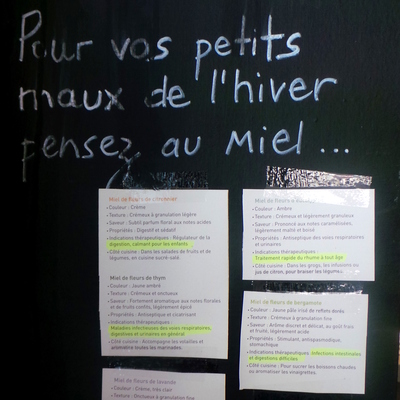 Pour vos petits
maux de l'hiver
pensez au Miel...
Miel de fleurs de citronnier
• Couleur : Crème
• Texture : Crémeux à granulation légère
• Saveur : Subtil parfum floral aux notes acides
• Propriétés : Digestif et sédatif
• Indications thérapeutiques : Régulateur de la
digestion, calmant pour les enfants
• Côté cuisine : Dans les salades de fruits et de
légumes, en cuisine sucré-salé
Miel de fleurs de thym
• Couleur : Jaune ambré
• Texture : Crémeux et onctueux
• Saveur : Fortement aromatique aux notes florales
et de fruits confits, légèrement épicé
• Propriétés : Antiseptique et cicatrisant
• Indications thérapeutiques :
Maladies infectieuses des voies respiratoires,
digestives et urinaires en général
• Côté cuisine : Accompagne les volailles et
aromatise toutes les marinades.
Miel de fleurs de lavande
• Couleur : Crème, très clair
• Texture : Onctueux à granulation fine
Miel de fleurs
• Couleur : Ambré
• Texture : Crémeux et légèrement granuleux
• Saveur : Prononcé aux notes caramélisées,
légèrement malté et boisé
• Propriétés : Antiseptique des voies respiratoires
et urinaires
• Indications thérapeutiques :
Traitement rapide du rhume à tout âge
• Côté cuisine : Dans les grogs, les infusions au
jus de citron, pour braiser les légumes
Miel de fleurs de bergamote
• Couleur : Jaune pâle irisé de reflets dorés
• Texture : Crémeux à granulation fine
• Saveur : Arôme discret et délicat, au goût frais
et fruité, légèrement acide
• Propriétés : Stimulant, antispasmodique,
stomachique
• Indications thérapeutiques : Infections intestinales
et digestions difficiles
• Côté cuisine : Pour sucrer les boissons chaudes
ou aromatiser les vinaigrettes.